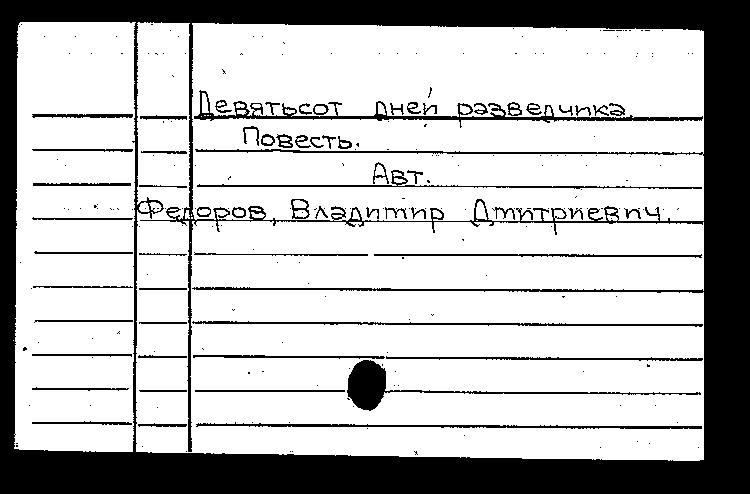 Девятьсот дней разведчика.
Повесть.
Авт.
Федоров, Владимир Дмитриевич.